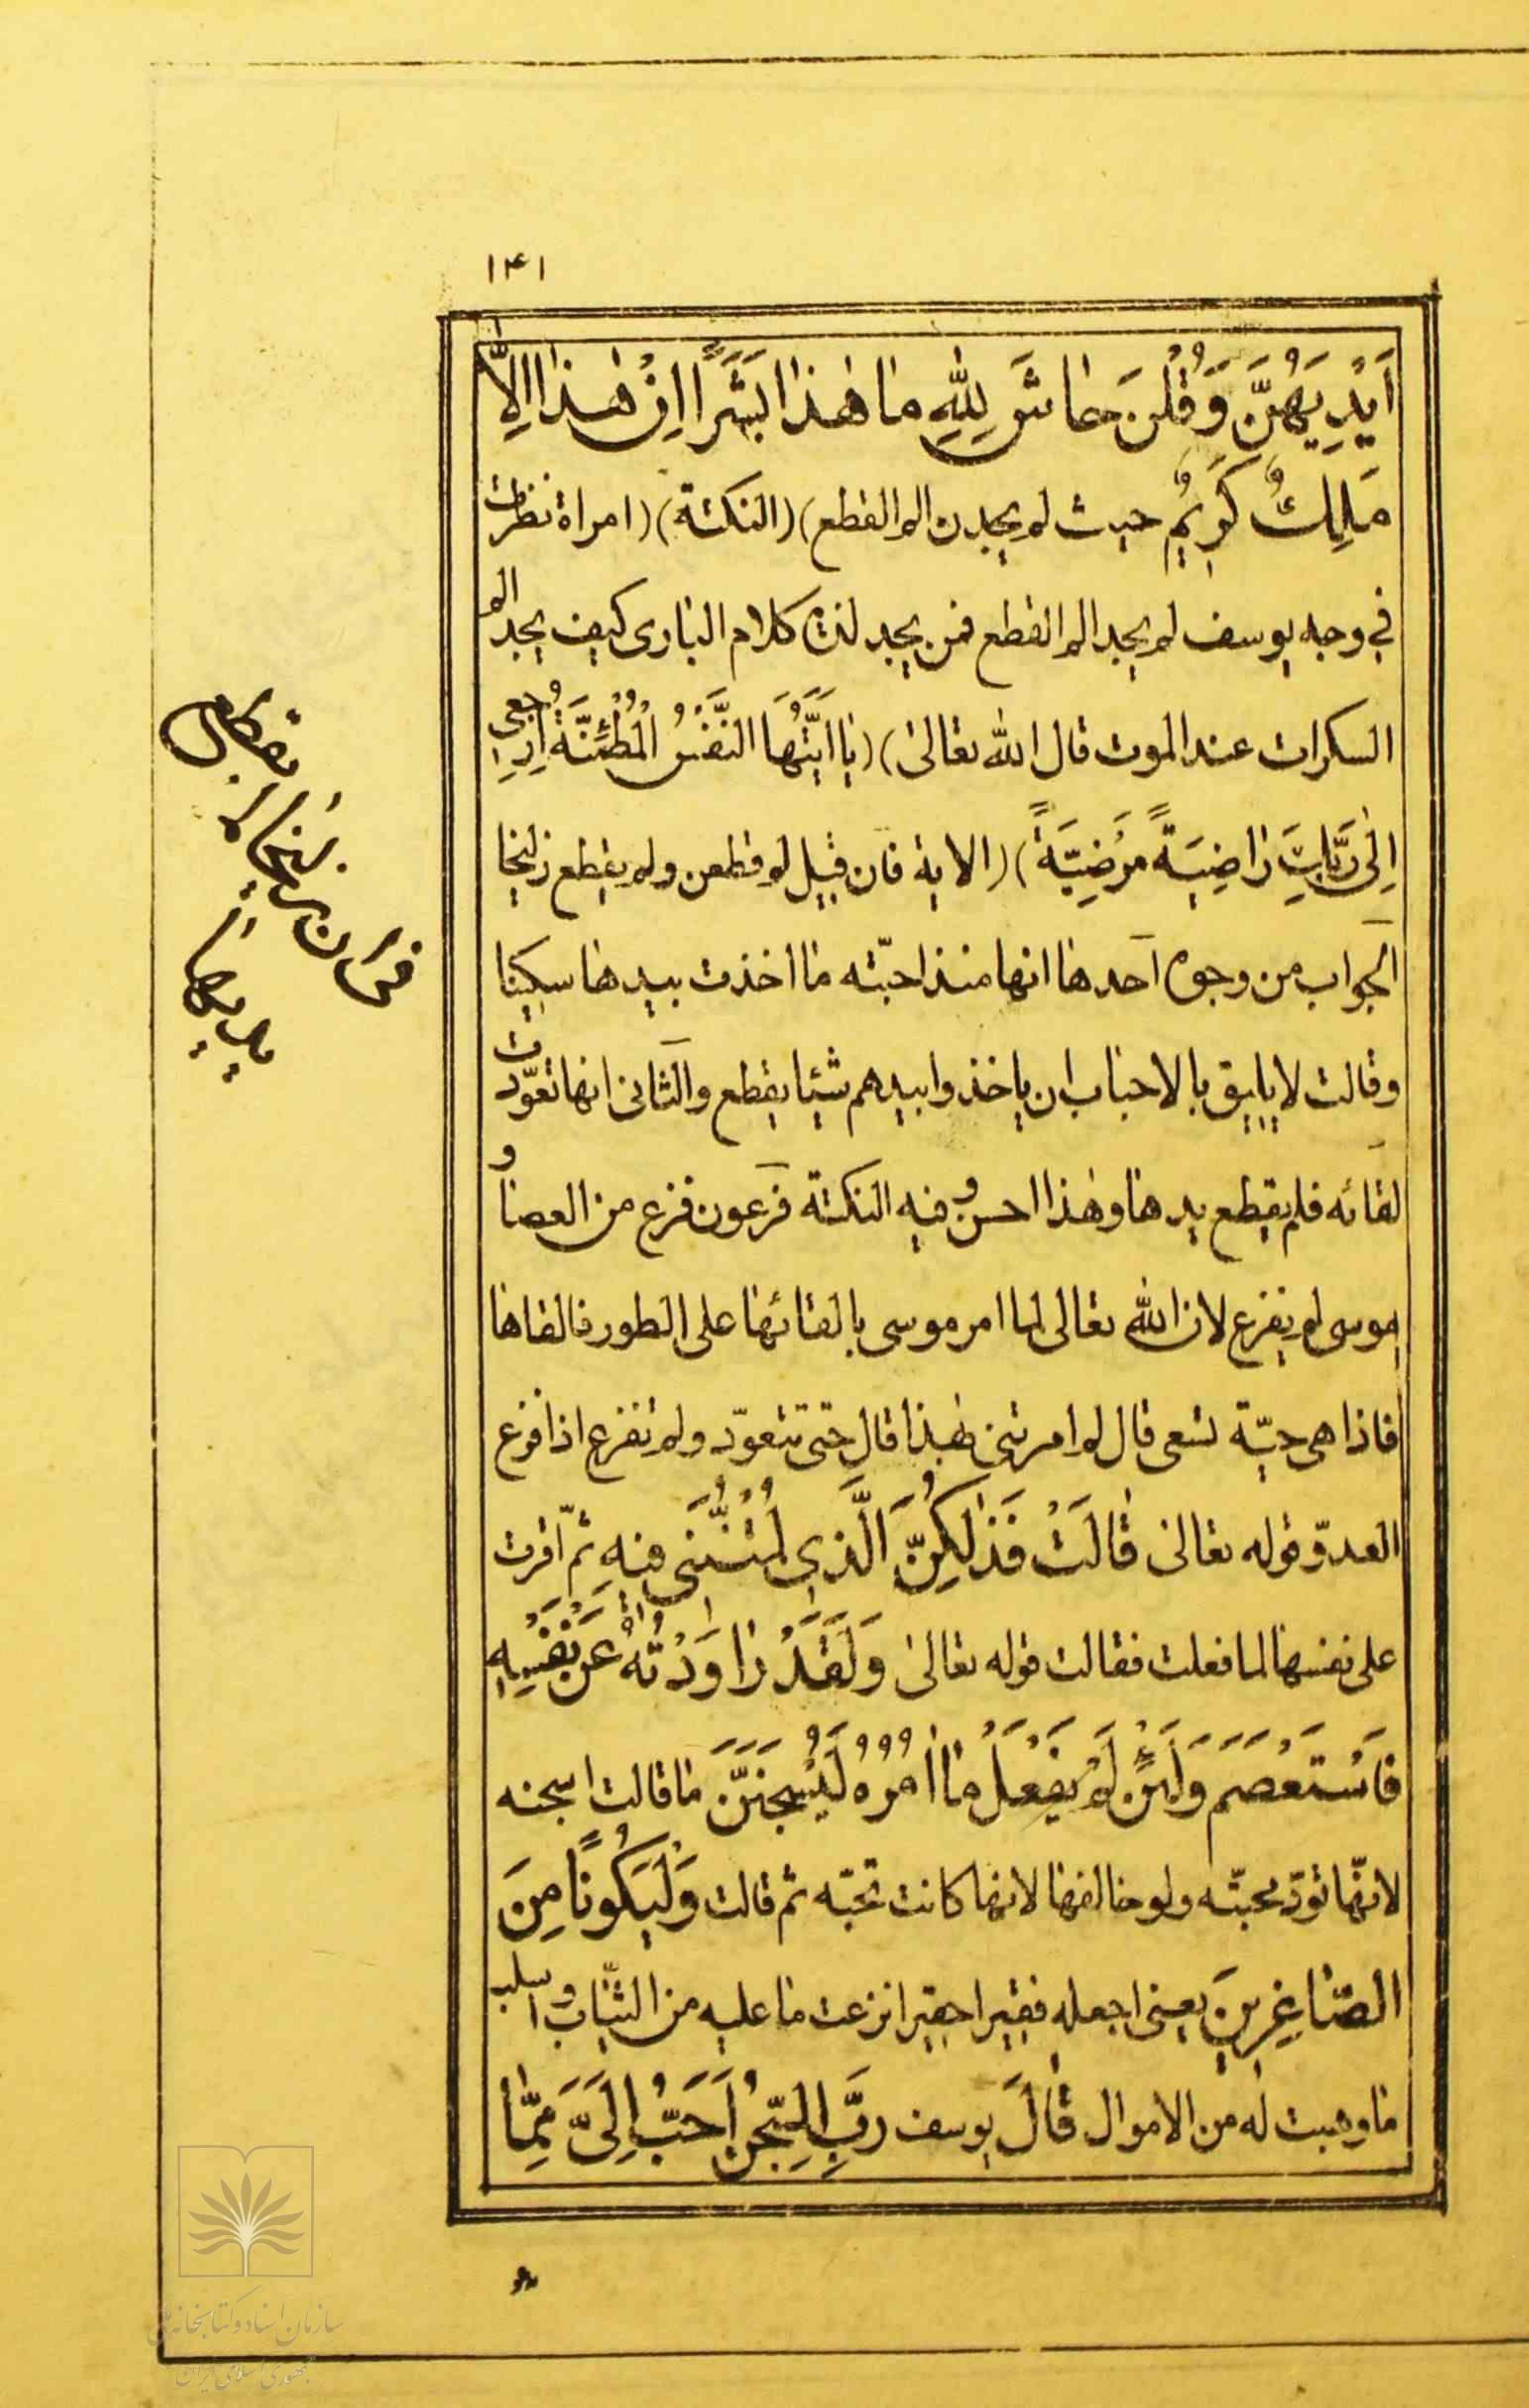 ۱۴۱
اَيْدِيَهُنَّ وَقُلْنَ حٰاشَ لِلّٰهِ مٰا هٰذٰا بَشَرًا اِنْ هٰذٰا اِلاّٰ
مَلَكٌ كَرِيمٌ حيث لم يجدن الم القطع) (النكتة) (امراة نظرت
في وجه يوسف لم يجد الم القطع فمن يجد لذة كلام البارى كيف يجد الم
السكرات عند الموت قال الله تعالىٰ) (يٰا اَيَّتُهَا النَّفْسُ الْمُطْمَئِنَّةُ اِرْجِعى
اِلىٰ رَبِّكِ رٰاضِيَةً مَرْضِيَّةً) (الاية فان قيل لم قطعن ولم يقطع زليخا
الجواب من وجوه احدها انها منذ احبّته ما اخذت بيدها سكينا
وقالت لا يليق بالاحباب ان ياخذوا بيدهم شيئا يقطع والثانى انها تعوّدت
لقائه فلم يقطع يدها وهذا احسن وفيه النكتة فرعون فزع من العصا و
موسى لم يفزع لان الله تعالى لما امر موسى بالقائها على الطور فالقاها
فاذا هى حيّة تسعى قال لم امرتنى بهذا قال حتى تتعوّد ولم تفزع اذا فزع
العدوّ قوله تعالىٰ قٰالَتْ فَذٰلِكُنَّ الَّذِي لُمْتُنَّنِى فِيهِ ثمّ اقرت
على نفسها لما فعلت فقالت قوله تعالىٰ وَلَقَدْ رٰاوَدْتُهُ عَنْ نَفْسِهِ
فَاسْتَعْصَمَ وَلَئِنْ لَمْ يَفْعَلْ مٰا اٰمُرُهُ لَيُسْجَنَنَّ ما قالت اسجنه
لانّها تودّ محبّته ولو خالفها لانها كانت تحبّه ثم قالت وَلَيَكُونًا مِنَ
الصّٰاغِرِينَ يعنى اجعله فقيرا حقيرا نزعت ما عليه من الثياب و اسلب
ما وهبت له من الاموال قٰالَ يوسف رَبِّ السِّجْنُ اَحَبُّ اِلَىَّ مِمّٰا
سازمان اسناد و کتابخانه ملی
جمهوری اسلامی ایران